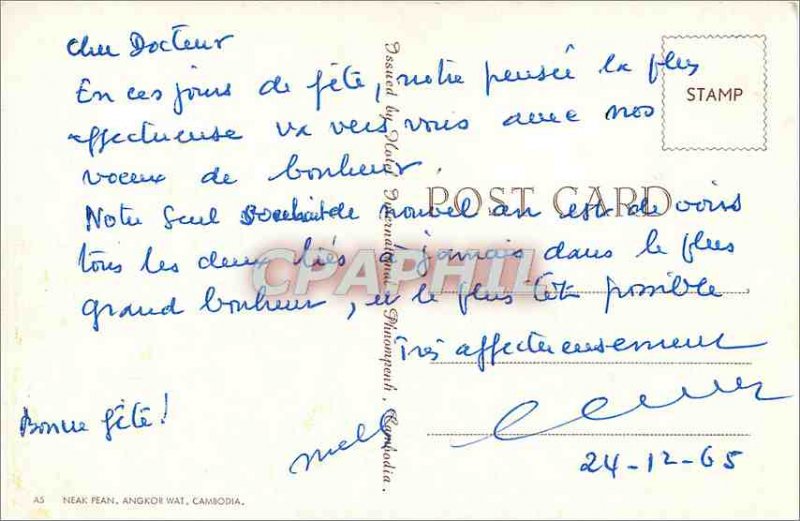 Cher Docteur
En ces jours de fête, notre pensée la plus
affectueuse va vers vous avec nos
voeux de bonheur.
Notre seul souhait de nouvel an est de voir
tous les deux liés à jamais dans le plus
grand bonheur, et le plus tôt possible
Très affectueusement
Bonne fête!
24-12-65
STAMP
POST CARD
Issued by Hotel International Phnompenh, Cambodia.
CPAPHIL
A5 NEAK PEAN, ANGKOR WAT, CAMBODIA.